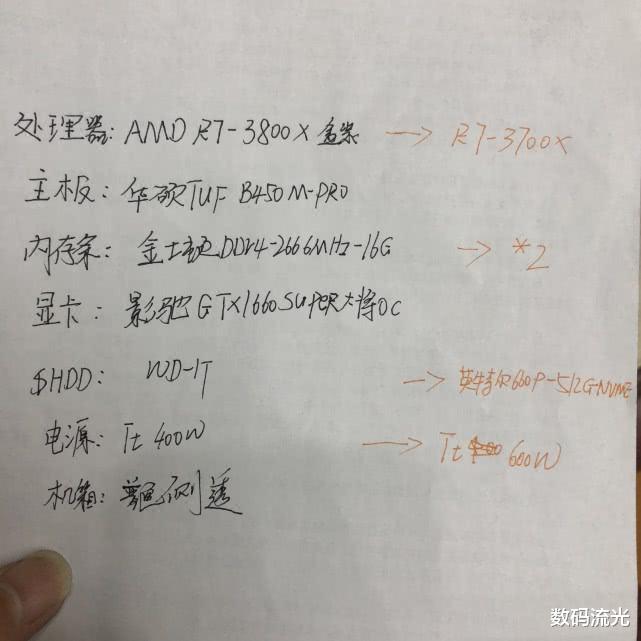 处理器: AMD R7-3800X 盒装 → R7-3700X
主板: 华硕TUF B450M-PRO
内存条: 金士顿DDR4-2666MHz-16G → *2
显卡: 影驰GTX1660SUPER大将OC
HDD: WD-1T → 英特尔660P-512G-NVME
电源: Tt 400W → Tt 600W
机箱: 侧透
数码流光